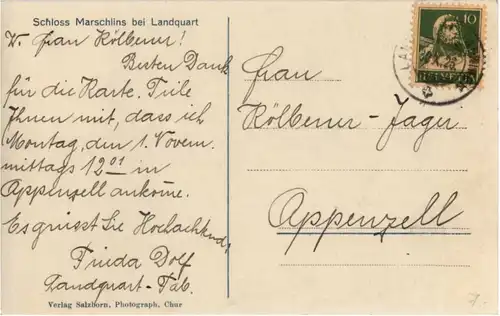 Schloss Marschlins bei Landquart
W. Frau Kölbener!
Besten Dank
für die Karte. Teile
Ihnen mit, dass ich
Montag, den 1. Novem.
mittags 12 01 in
Appenzell ankome.
Es grüsst Sie Hochachtend,
Frieda Dolf
Landquart-Fab.
Verlag Salzborn, Photograph, Chur
10
HELVETIA
Frau
Kölbener-Jager
Appenzell
7.-